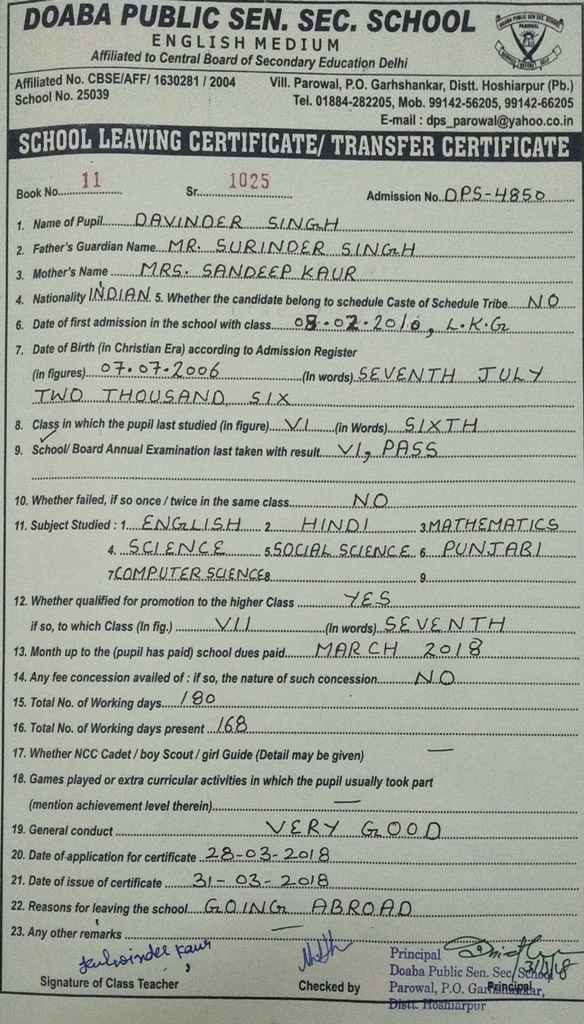 DOABA PUBLIC SEN. SEC. SCHOOL
ENGLISH MEDIUM
Affiliated to Central Board of Secondary Education Delhi
Affiliated No. CBSE/AFF/ 1630281 / 2004
School No. 25039
Vill. Parowal, P.O. Garhshankar, Distt. Hoshiarpur (Pb.)
Tel. 01884-282205, Mob. 99142-56205, 99142-66205
E-mail : dps_parowal@yahoo.co.in
SCHOOL LEAVING CERTIFICATE/ TRANSFER CERTIFICATE
Book No. 11 Sr. 1025 Admission No. DPS-4850
1. Name of Pupil DAVINDER SINGH
2. Father's Guardian Name MR. SURINDER SINGH
3. Mother's Name MRS. SANDEEP KAUR
4. Nationality INDIAN 5. Whether the candidate belong to schedule Caste of Schedule Tribe NO
6. Date of first admission in the school with class 08-02-2010, L.K.G
7. Date of Birth (in Christian Era) according to Admission Register
(in figures) 07.07.2006 (In words) SEVENTH JULY
TWO THOUSAND SIX
8. Class in which the pupil last studied (in figure) VI (in Words) SIXTH
9. School/ Board Annual Examination last taken with result VI, PASS
10. Whether failed, if so once / twice in the same class NO
11. Subject Studied : 1. ENGLISH 2. HINDI 3. MATHEMATICS
4. SCIENCE 5. SOCIAL SCIENCE 6. PUNJABI
7. COMPUTER SCIENCE 8. 9.
12. Whether qualified for promotion to the higher Class YES
if so, to which Class (In fig.) VII (In words) SEVENTH
13. Month up to the (pupil has paid) school dues paid MARCH 2018
14. Any fee concession availed of : if so, the nature of such concession NO
15. Total No. of Working days 180
16. Total No. of Working days present 168
17. Whether NCC Cadet / boy Scout / girl Guide (Detail may be given) —
18. Games played or extra curricular activities in which the pupil usually took part
(mention achievement level therein) —
19. General conduct VERY GOOD
20. Date of application for certificate 28-03-2018
21. Date of issue of certificate 31-03-2018
22. Reasons for leaving the school GOING ABROAD
23. Any other remarks —
Kaur
Signature of Class Teacher
Checked by
Principal
Doaba Public Sen. Sec. School
Parowal, P.O. Garhshankar,
Distt. Hoshiarpur
Principal